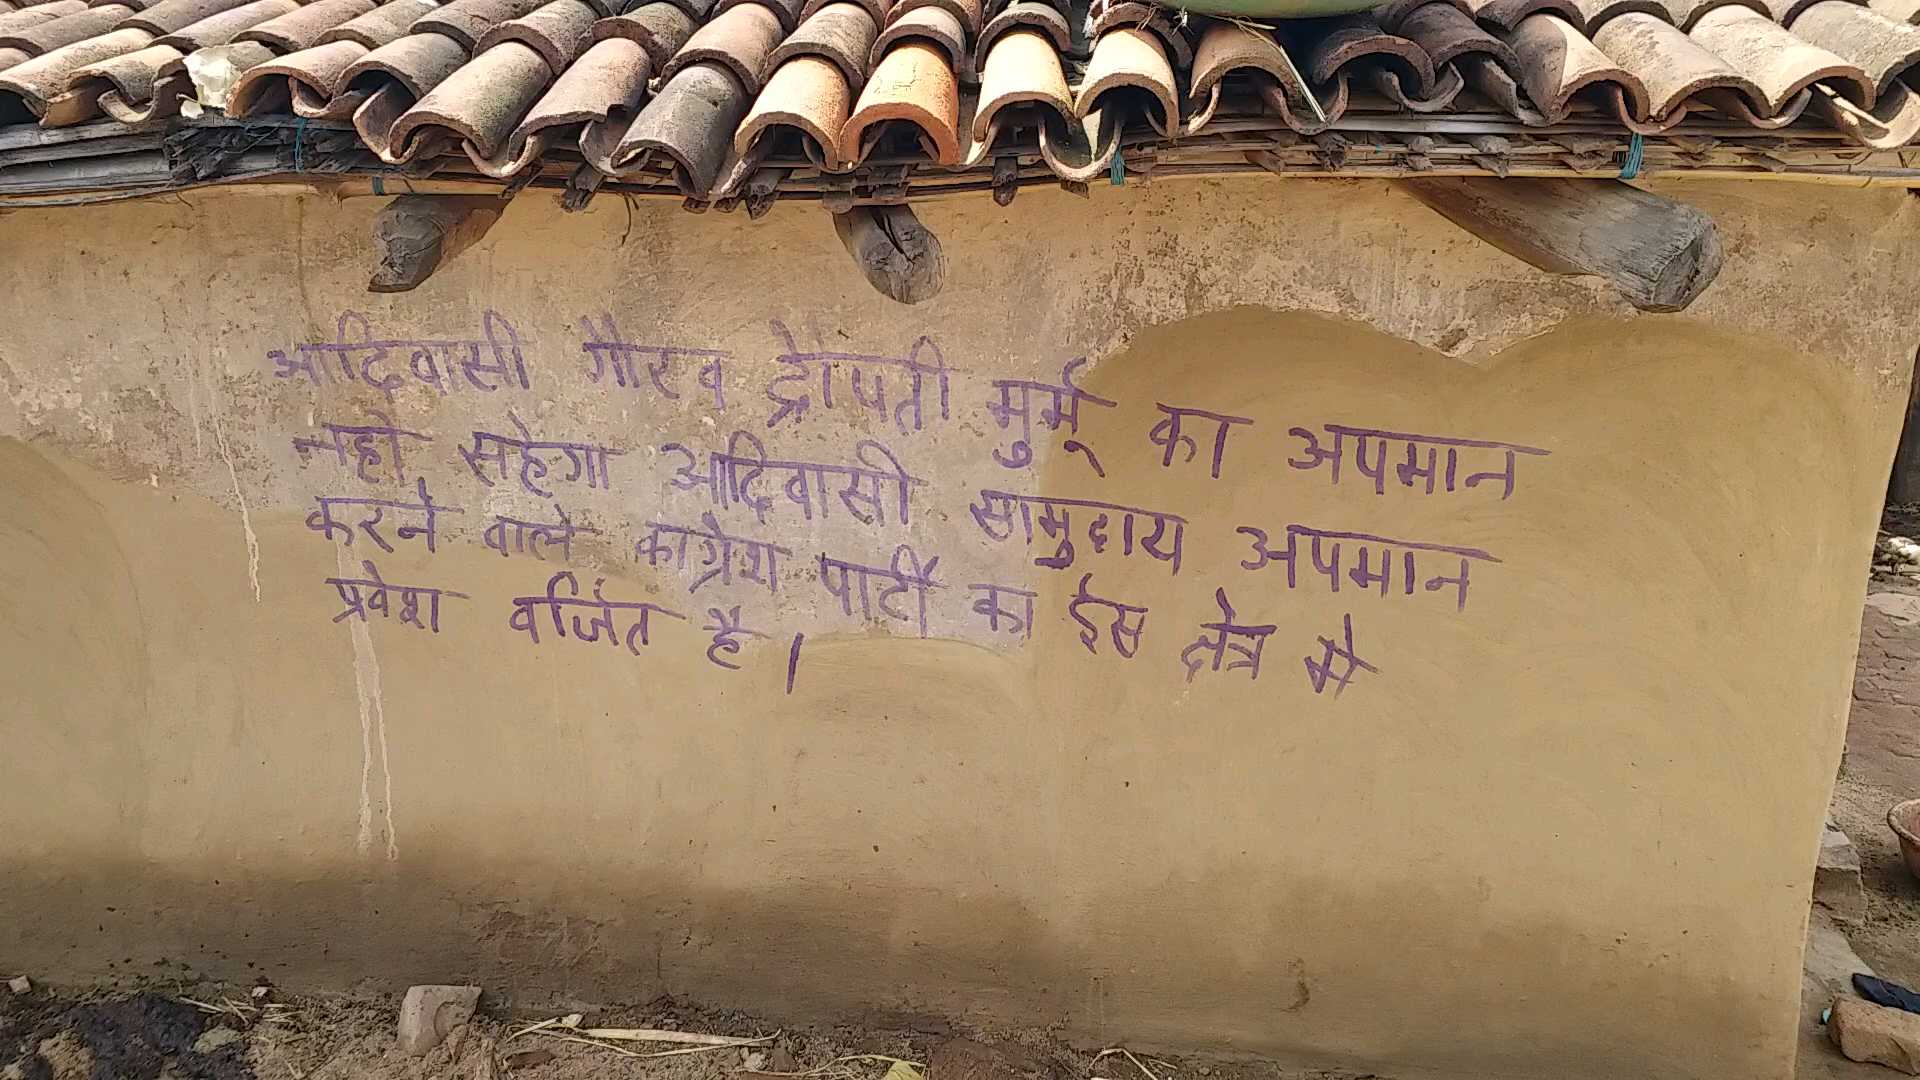 आदिवासी गौरव द्रौपती मुर्मू का अपमान
नही सहेगा आदिवासी सामुदाय अपमान
करने वाले कांग्रेश पार्टी का ईस क्षेत्र मे
प्रवेश वर्जित है।